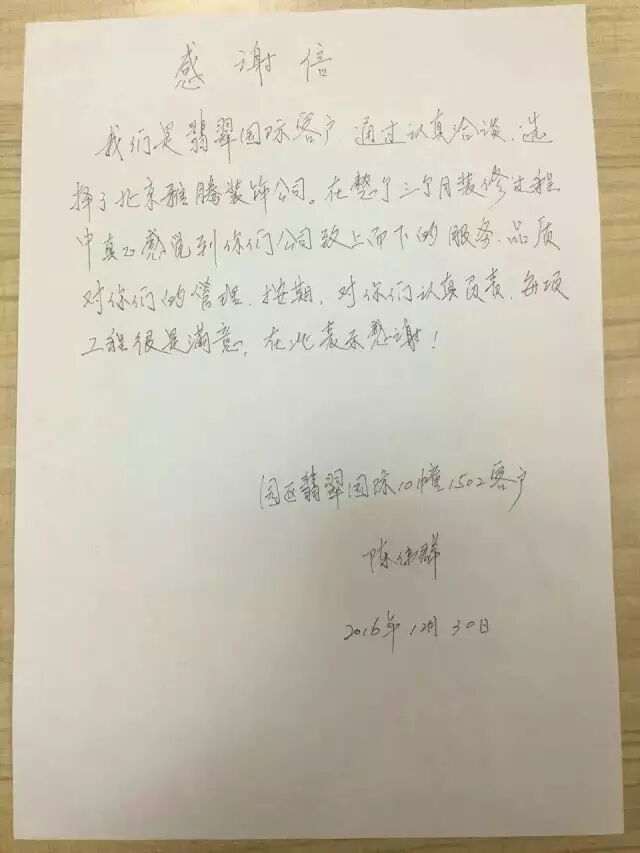 感谢信
我们是翡翠国际客户 通过认真洽谈.选
择了北京雅腾装饰公司。在整个三个月装修过程
中真正感觉到你们公司致上而下的服务.品质
对你们的管理.按期.对你们认真负责.每项
工程很是满意,在此表示感谢!
园区翡翠国际10幢1502客户
陈
2016年12月30日